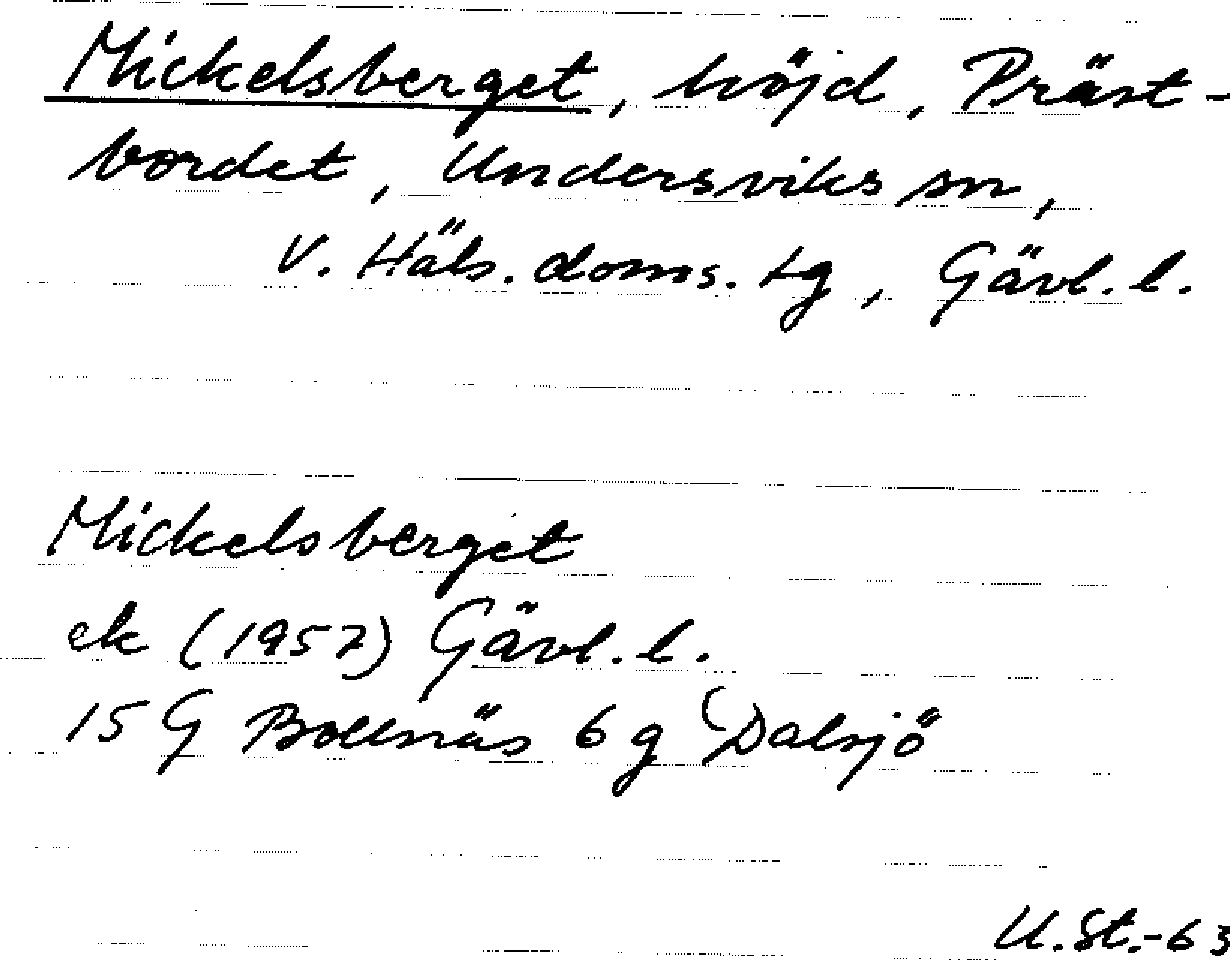 Mickelsberget, höjd, Präst-
bordet, Undersviks sn,
V. Häls. doms. tg, Gävl. l.
Mickelsberget
ek (1957) Gävl. l.
15 G Bollnäs 6 g Dalsjö
U.St.-63